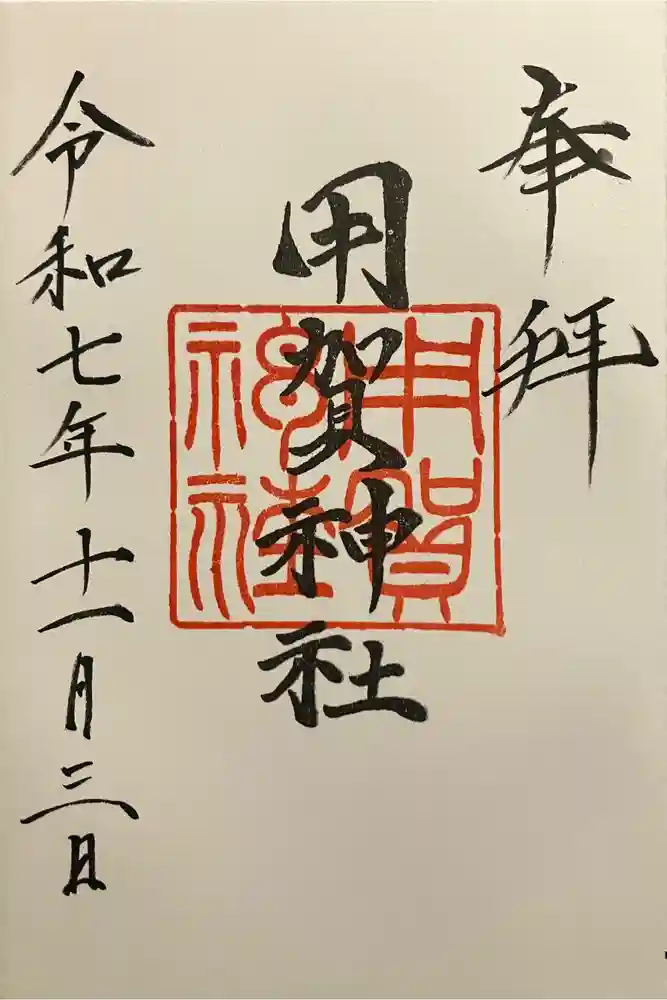 奉拝
用賀神社
用賀神社
令和七年十一月三日